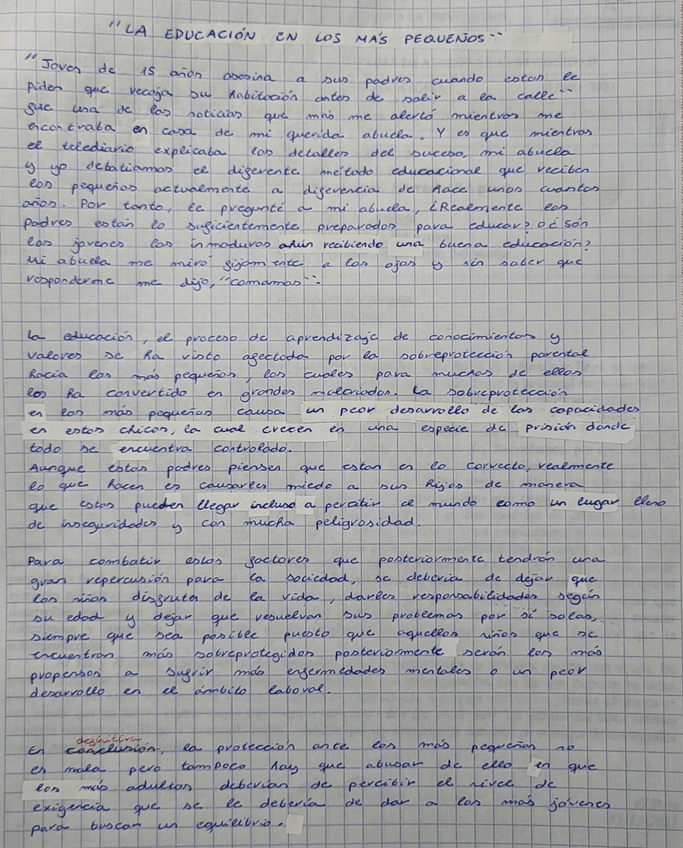 "LA EDUCACIÓN EN LOS MÁS PEQUEÑOS"
"Joven de 15 años asesina a sus padres cuando estos le
piden que recoja su habitación antes de salir a la calle"
gue una de las noticias que más me alertó mientras me
encontraba en casa de mi querida abuela. Y es que mientras
el telediario explicaba los detalles del suceso, mi abuela
y yo debatíamos el diferente método educacional que reciben
los pequeños actualmente a diferencia de hace unos cuantos
años. Por tanto, le pregunté a mi abuela, ¿Realmente los
padres están lo suficientemente preparados para educar? o ¿Son
los jovenes los inmaduros aún recibiendo una buena educación?
Mi abuela me miró fijamente a los ojos y sin saber que
responderme me dijo, "comamos".
La educación, el proceso de aprendizaje de conocimientos y
valores se ha visto afectada por la sobreprotección parental
hacia los más pequeños, los cuales para muchos de ellos
los ha convertido en grandes malcriados. La sobreprotección
en los más pequeños causa un peor desarrollo de las capacidades
en estos chicos, la cual crecen en una especie de prisión donde
todo se encuentra controlado.
Aunque estos padres piensen que estan en lo correcto, realmente
lo que hacen es causarles miedo a sus hijos de manera
que estos pueden llegar incluso a percatir el mundo como un lugar lleno
de inseguridades y con mucha peligrosidad.
Para combatir estos factores que posteriormente tendrán una
gran repercusión para la sociedad, se debería de dejar que
los niños disfruten de la vida, darles responsabilidades según
su edad y dejar que resuelvan sus problemas por sí solos,
siempre que sea posible puesto que aquellos niños que se
encuentran más sobreprotegidos posteriormente serán los más
propensos a sufrir más enfermedades mentales o un peor
desarrollo en el ámbito laboral.
definitiva
En conclusión, la protección ante los más pequeños no
es mala pero tampoco hay que abusar de ello en que
los más adultos deberían de percibir el nivel de
exigencia que se le debería de dar a los más jóvenes
para buscar un equilibrio.